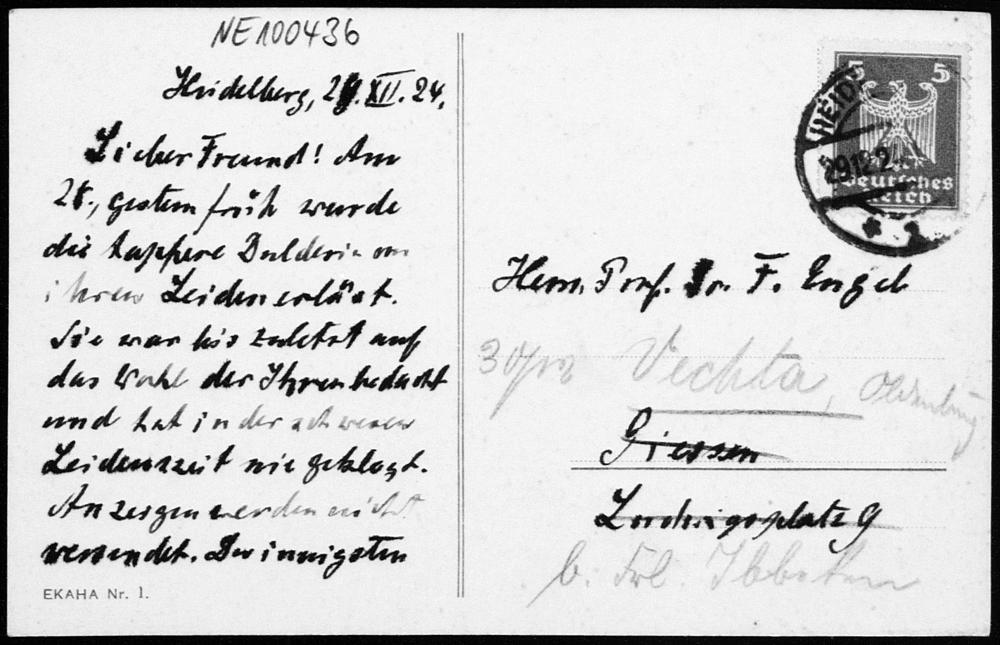 NE100436
Heidelberg, 29. XII. 24.
Lieber Freund! Am
28., gestern früh wurde
die tappere Dulderin von
ihren Leiden erlöst.
Sie war bis zuletzt auf
das Wohl der Ihren bedacht
und hat in der schweren
Leidenszeit nie geklagt.
Anzeigen werden nicht
versendet. Der innigsten
EKAHA Nr. 1.
5 5
HEID
29.12.2
Deutsches
Reich
* 2
Herrn Prof. Dr. F. Engel
Vechta, Oldenburg
Giessen
Ludwigsplatz 9
b. Frl. Ibbeken